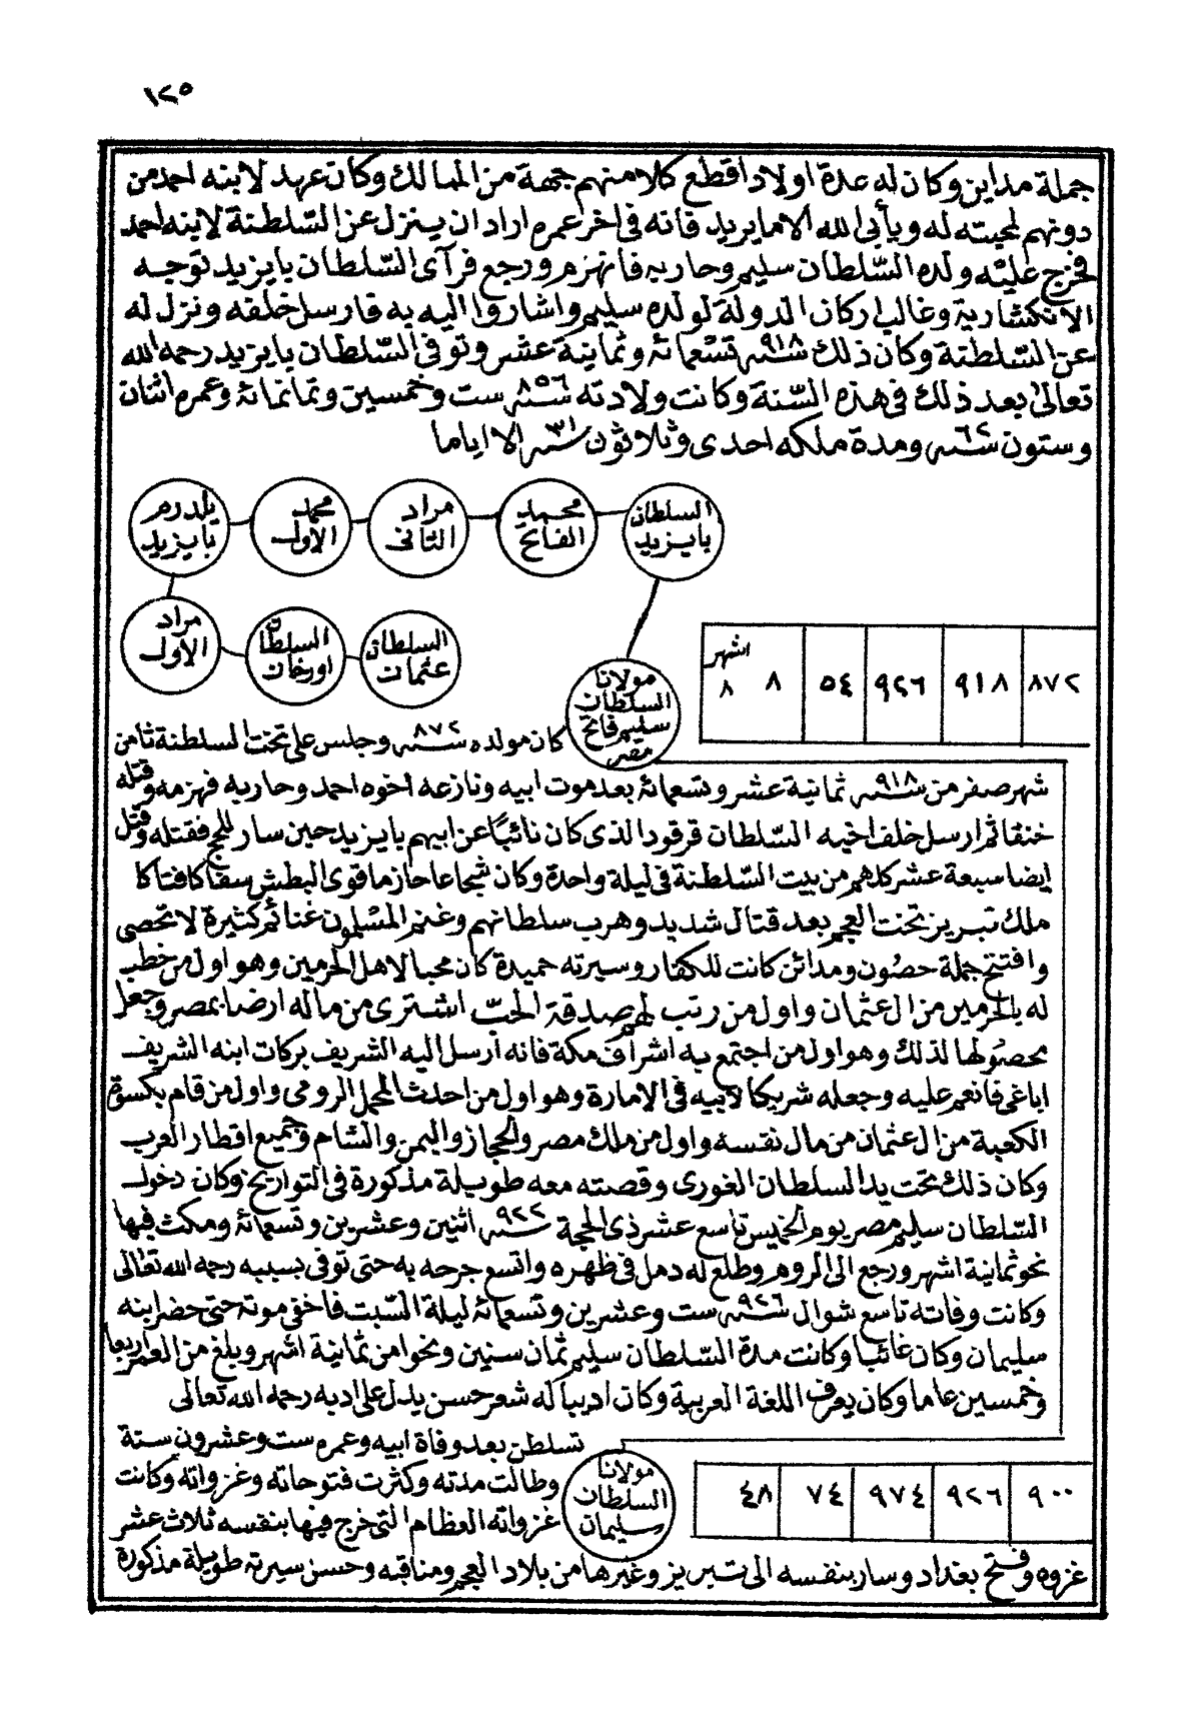 ١٢٥
جملة مداين وكان له عدة اولاد اقطع كلا منهم جهة من الممالك وكان عهد لابنه احمد من
دونهم لمحبته له ويأبى الله الا ما يريد فانه فى اخر عمره اراد ان ينزل عن السّلطنة لابنه احمد
فخرج عليْه ولده السّلطان سليم وحاربه فانهزم ورجع فرآى السّلطان بايزيد توجه
الانكشارية وغالب اركان الدولة لولده سليم واشاروا اليه به فارسل خلفه ونزل له
عن السّلطنة وكان ذلك سنة ٩١٨ تسعمائة وثمانية عشر وتوفى السّلطان بايزيد رحمه الله
تعالى بعد ذلك فى هذه السّنة وكانت ولادته سنة ٨٥٦ ست وخمسين وثمانمائة وعمره اثنان
وستون سنة ٦٢ ومدة ملكه احدى وثلاثون سنة ٣١ الا اياما
السلطان بايزيد
محمد الفاتح
مراد الثانى
محمد الاول
يلدرم بايزيد
مراد الاول
السلطان اورخان
السلطان عثمان
٨٧٢ ٩١٨ ٩٢٦ ٥٤ ٨ اشهر ٨
مولانا السلطان سليم فاتح مصر
كان مولده سنة ٨٧٢ وجلس على تخت السلطنة ثامن
شهر صفر من سنة ٩١٨ ثمانية عشر وتسعمائة بعد موت ابيه ونازعه اخوه احمد وحاربه فهزمه وقتله
خنقا ثم ارسل خلف اخيه السّلطان قرقود الذى كان نائبًا عن ابيهم بايزيد حين سار للحج فقتله وقتل
ايضا سبعة عشر كلهم من بيت السّلطنة فى ليلة واحدة وكان شجاعا حازما قوى البطش سفاكا فتاكا
ملك تبريز تخت العجم بعد قتال شديد وهرب سلطانهم وغنم المسْلمون غنائم كثيرة لا تحصى
وافتتح جملة حصُون ومدائن كانت للكفار وسيرته حميدة كان محبا لاهل الحرمين وهو اول من خطب
له بالحرمين من ال عثمان واول من رتب لهم صدقة الحَبّ اشترى من ماله ارضا بمصر وجعل
محصُولها لذلك وهو اول من اجتمع به اشراف مكة فانه أرسل اليه الشريف بركات ابنه الشريف
اباغى فانعم عليه وجعله شريكا لابيه فى الامارة وهو اول من احدث المحمل الرومى واول من قام بكسوة
الكعبة من ال عثمان من مال نفسه واول من ملك مصر والحجاز واليمن والشام وجميع اقطار العرب
وكان ذلك تحت يد السلطان الغورى وقصته معه طويلة مذكورة فى التواريخ وكان دخول
السّلطان سليم مصر يوم الخميس تاسع عشر ذى الحجة سنة ٩٢٢ اثنين وعشرين وتسعمائة ومكث فيها
نحو ثمانية اشهر ورجع الى الروم وطلع له دمل فى ظهره واتسع جرحه به حتى توفى بسببه رحمه الله تعالى
وكانت وفاته تاسع شوال سنة ٩٢٦ ست وعشرين وتسعمائة ليلة السّبت فاخفى موته حتى حضر ابنه
سليمان وكان غائبا وكانت مدة السّلطان سليم ثمان سنين ونحوا من ثمانية اشهر وبلغ من العمر اربعا
وخمسين عاما وكان يعرف اللغة العربية وكان اديبا له شعر حسن يدل على ادبه رحمه الله تعالى
٩٠٠ ٩٢٦ ٩٧٤ ٧٤ ٤٨
مولانا السلطان سليمان
تسلطن بعد وفاة ابيه وعمره ست وعشرون سنة
وطالت مدته وكثرت فتوحاته وغزواته وكانت
غزواته العظام التى خرج فيها بنفسه ثلاث عشر
غزوه وفتح بغداد وسار بنفسه الى تبريز وغيرها من بلاد العجم ومناقبه وحسن سيرته طويلة مذكورة